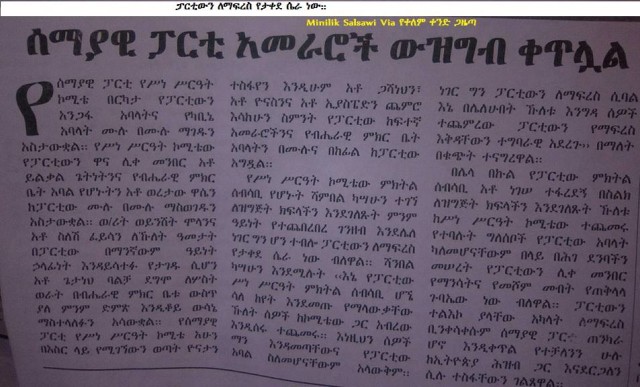 ፓርቲውን ለማፍረስ የታቀደ ሴራ ነው።
Minilik Salsawi Via የቀለም ቀንድ ጋዜጣ
ሰማያዊ ፓርቲ አመራሮች ውዝግብ ቀጥሏል
የሰማያዊ ፓርቲ የሥነ ሥርዓት
ኮሚቴ በርካታ የፓርቲውን
አንጋፋ አባላትና የካቢኔ
አባላት ሙሉ በሙሉ ማገዱን
አስታውቋል። የሥነ ሥርዓት ኮሚቴው
የፓርቲውን ዋና ሊቀ መንበር አቶ
ይልቃል ጌትነትንና የብሔራዊ ምክር
ቤት አባል የሆኑትን አቶ ወረታው ዋሴን
ከፓርቲው ሙሉ በሙሉ ማስወገዱን
አስታውቋል። ወ/ሪት ወይንሸት ሞላንና
አቶ ስለሺ ፈይሳን ለሁለት ዓመታት
በፓርቲው በማንኛውም ዓይነት
ኃላፊነት እንዳይሳተፉ የታገዱ ሲሆን
አቶ ጌታነህ ባልቻ ደግሞ ለሦስት
ወራት በብሔራዊ ምክር ቤቱ ውስጥ
ያለ ምንም ድምጽ እንዲቆይ ውሳኔ
ማስተላለፉን አሳውቋል። የሰማያዊ
ፓርቲ የሥነ ሥርዓት ኮሚቴ አሁን
በእስር ላይ የሚገኘውን ወጣት ዮናታን
ተስፋየን እንዲሁም አቶ ጋሻነህን፣
አቶ ዮናስንና አቶ ኢያስፔድን ጨምሮ
እላከሁን ስምንት የፓርቲው ከፍተኛ
አመራሮችንና የብሔራዊ ምክር ቤት
አባላትን በሙሉና በከፊል ከፓርቲው
አግዷል።
የሥነ ሥርዓት ኮሚቴው ምክትል
ሰብሳቢ የሆኑት ሻምበል ካሣሁን ተገኝ
ለዝግጅት ክፍላችን እንደገለጹት ምንም
ዓይነት የተጨበረበረ ገንዘብ እንደሌለ
ነገር ግን ሆን ተብሎ ፓርቲውን ለማፍረስ
የታቀደ ሴራ ነው ብለዋል። ሻንበል
ካሣሁን እንደሚሉት ‹‹እኔ የፓርቲው
ሥነ ሥርዓት ምክትል ሰብሳቢ ሆኜ
ሳለ ከየት እንደመጡ የማላውቃቸው
ኹለት ሰዎች ከኮሚቴው ጋር አብረው
እንዲሰሩ ተጨመሩ። እነዚህን ሰዎች
ማን እንዳመጣቸውና የፓርቲው
አባል ስለመሆናቸውም አላውቅም።
ነገር ግን ፓርቲውን ለማፍረስ ሲባል
እኔ በሌለሁበት ኹለቱ እንግዳ ሰዎች
ተጨምረው ፓርቲውን የማፍረስ
እቅዳቸውን ተግባራዊ አደረጉ›› በማለት
በቁጭት ተናግረዋል።
በሌላ በኩል የፓርቲው ምክትል
ሰብሳቢ አቶ ነገሠ ተፋረደኝ በስልክ
ለዝግጅት ክፍላችን እንደገለጹት ኹለቱ
ከሥነ ሥርዓት ኮሚቴው ተጨመሩ
የተባሉት ግለሰቦች የፓርቲው አባላት
ካለመሆናቸውም በላይ በሕገ ደንባችን
መሠረት የፓርቲውን ሊቀ መንበር
የማንሳትና የመሾም መብት የጠቅላላ
ጉባኤው ነው ብለዋል። ፓርቲውን
ተልእኮ ያላቸው አካላት ለማፍረስ
ቢንቀሳቀሱም ሰማያዊ ጠንካራ
ሆኖ እንዲቀጥል የተቻለንን ሁሉ
ከኢትዮጵያ ሕዝብ ጋር እናደርጋለን
ሲሉ ተስፋቸውን ገልጸዋል።